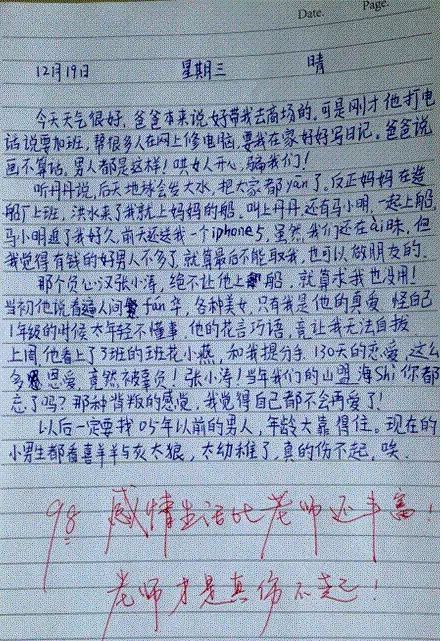 Date.  Page.
12月19日  星期三  晴
今天天气很好，爸爸本来说好带我去商场的，可是刚才他打电
话说要加班，帮很多人在网上修电脑，要我在家好好写日记。爸爸说
画不算话，男人都是这样！哄女人开心，骗我们！
听丹丹说，后天地球会发大水，把大家都yān了。反正妈妈在造
船厂上班，洪水来了我就上妈妈的船。叫上丹丹，还有马小明，一起上船。
马小明追了我好久，前天还送我一个iphone5，虽然我们还在ài昧，但
我觉得有钱的好男人不多了，就算最后不能取我，也可以做朋友的。
那个负心汉张小涛，绝不让他上船，就算求我也没用！
当初他说看遍人间fán华，各种美女，只有我是他的真爱 怪自己
1年级的时候太年轻不懂事，他的花言巧语，竟让我无法自拔
上周他看上了3班的班花小燕，和我提分手，130天的恋爱，这么
多恩爱，竟然被辜负！张小涛！当年我们的山盟海Shì你都
忘了吗？那种背叛的感觉，我觉得自己都不会再爱了！
以后一定要找05年以前的男人，年龄大靠得住。现在的
小男生都看喜羊羊与灰太狼，太幼稚了，真的伤不起，唉。
98 感情生活比老师还丰富！
老师才是真伤不起！